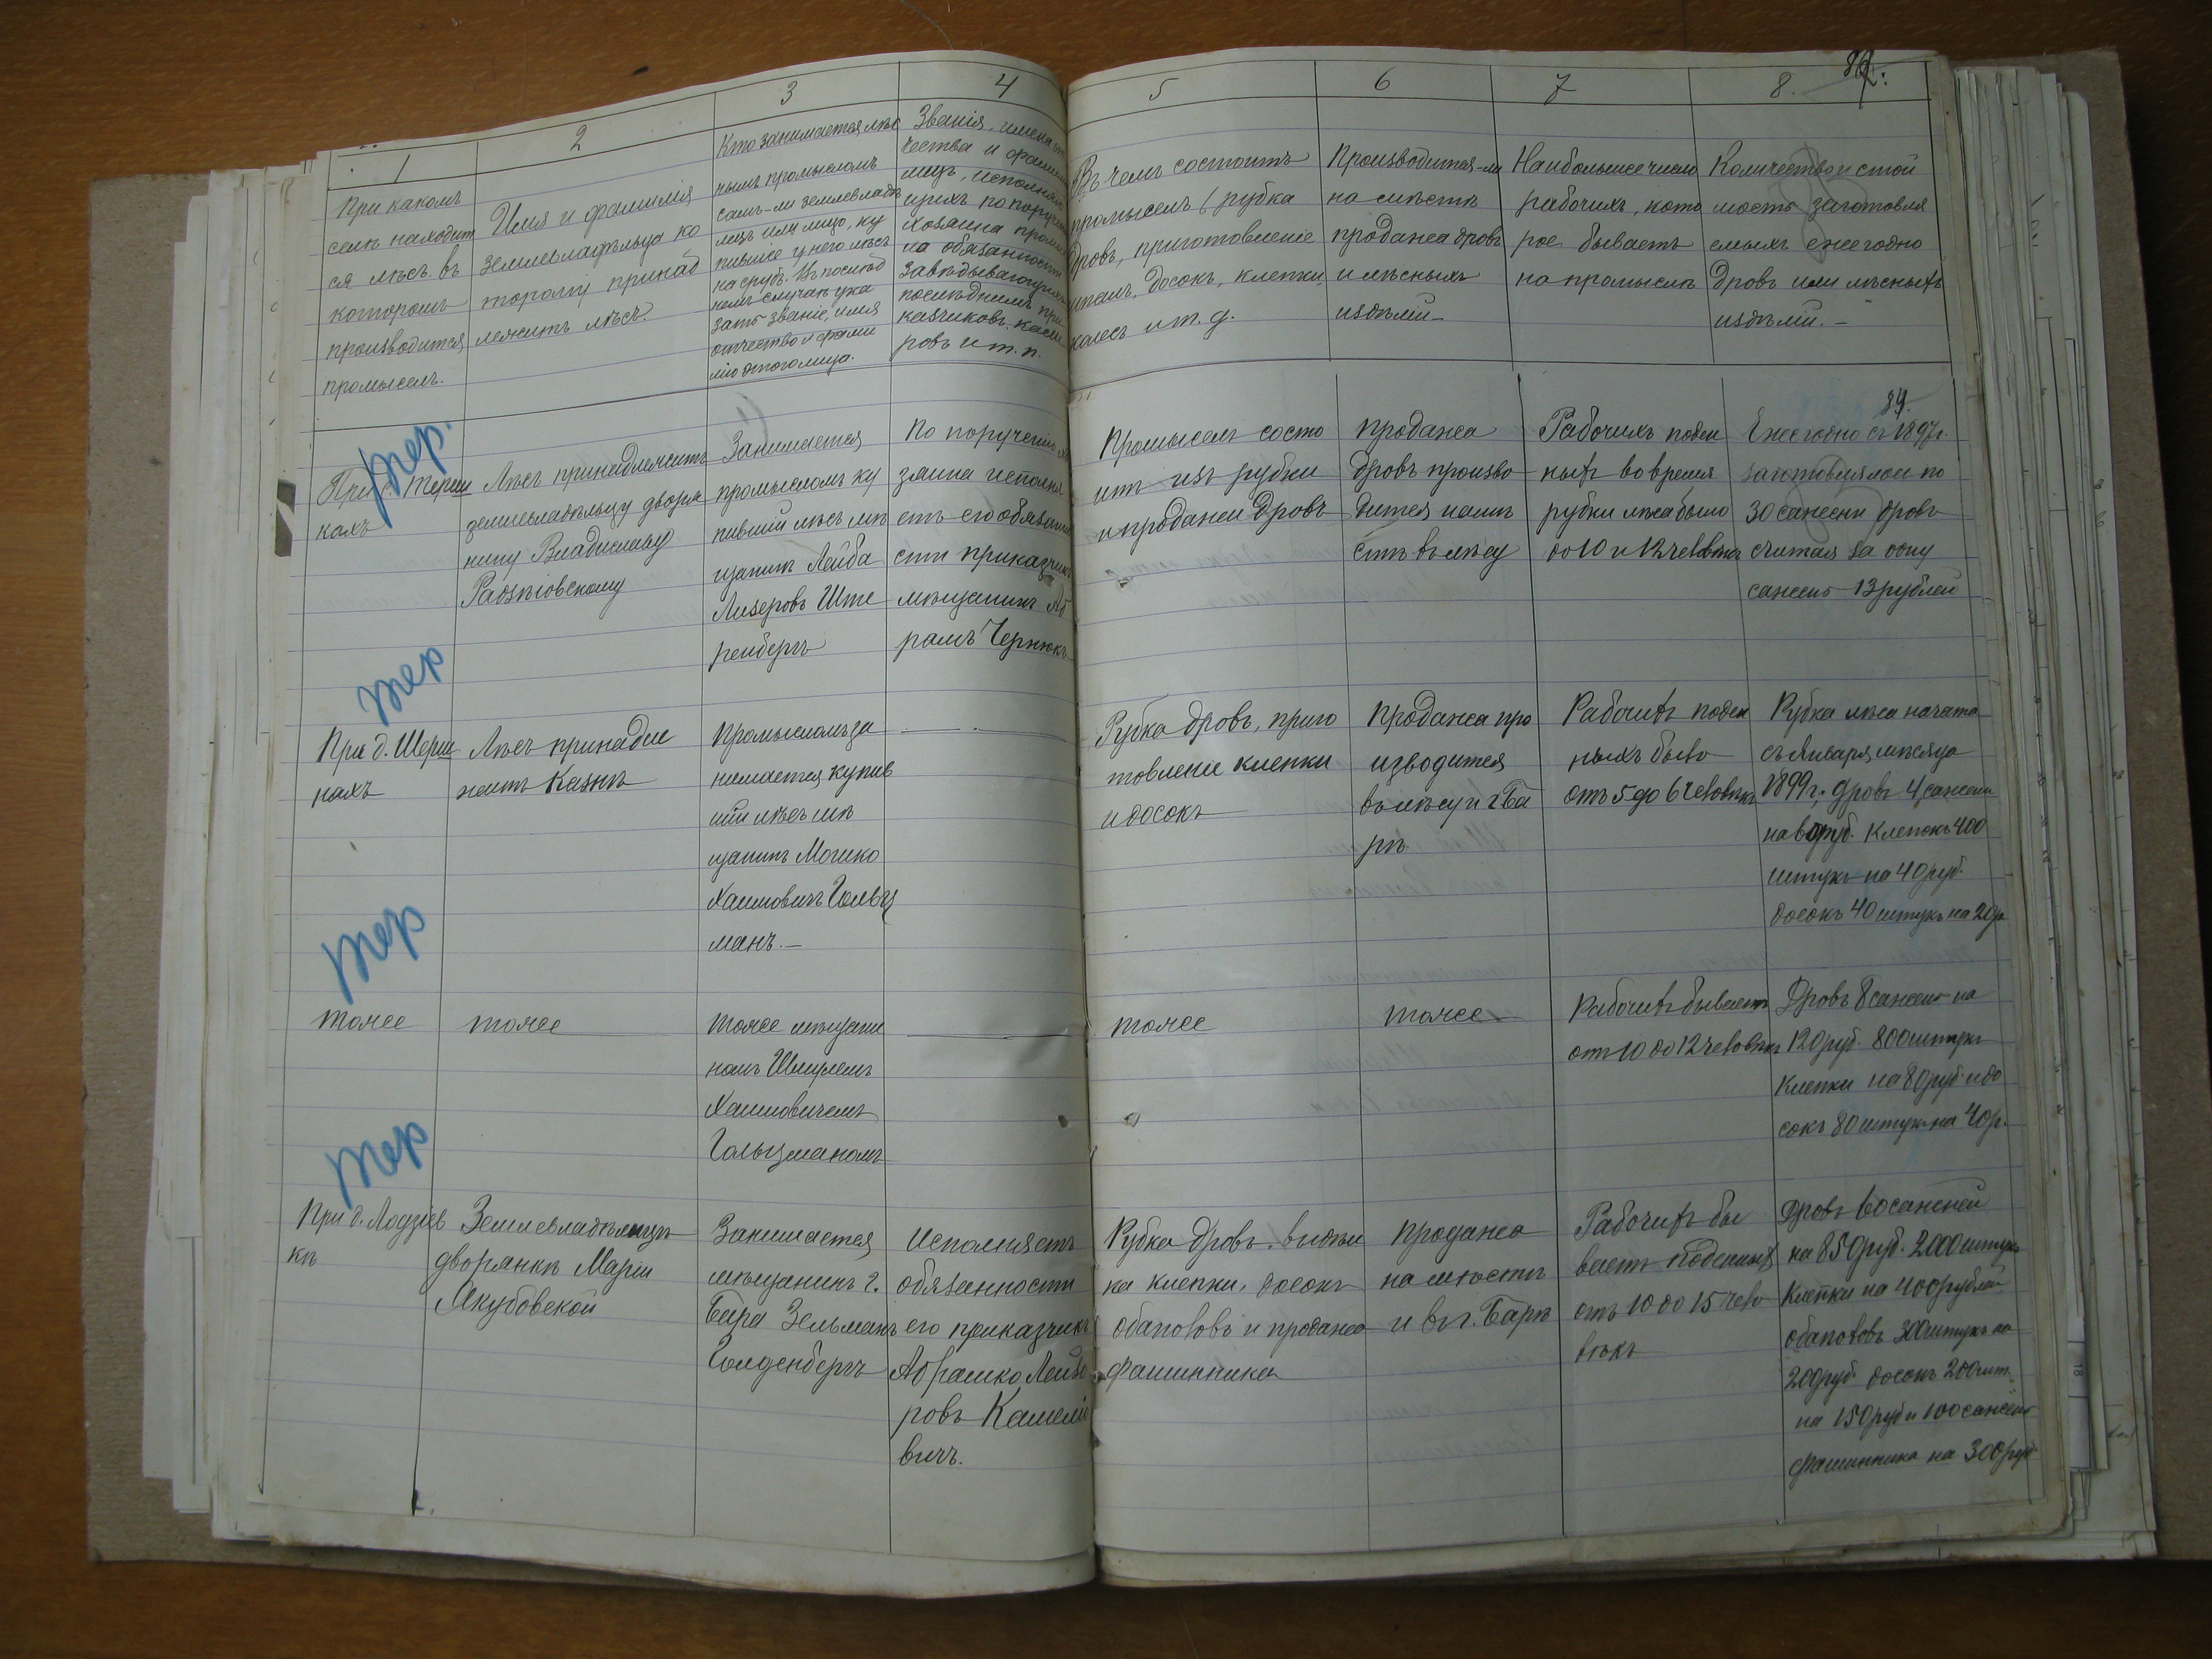 82.
1
2
3
4
5
6
7
8.
При какомъ
селѣ находит
ся лѣсъ въ
которомъ
производится
промыселъ.
Имя и фамилія
землевладѣльца ко
торому принад
лежитъ лѣсъ.
Кто занимается лѣс
нымъ промысломъ
самъ-ли землевладѣ
лецъ или лицо, ку
пившее у него лѣсъ
на срубъ. Въ послѣд
немъ случаѣ ука
зать званіе, имя
отчество и фами
лію этого лица.
Званія, имена от
чества и фамиліи
лицъ, исполняю
щихъ по порученію
хозяина промыс
ла обязанности
завѣдывающихъ
послѣднимъ при
казчиковъ, касси
ровъ и т. п.
Въ чемъ состоитъ
промыселъ (рубка
дровъ, приготовленіе
шпалъ, досокъ, клепки,
колесъ и т. д.
Производится-ли
на мѣстѣ
продажа дровъ
и лѣсныхъ
издѣлій-
Наибольшее число
рабочихъ, кото
рое бываетъ
на промыслѣ
Количество и стои
мость заготовля
емыхъ ежегодно
дровъ или лѣсныхъ
издѣлій. -
тер.
При с. Терен
кахъ
Лѣсъ принадлежитъ
землевладѣльцу дворя
нину Владиславу
Радзѣіовскому
Занимается
промысломъ ку
пившій лѣсъ мѣ
щанинъ Лейба
Лизеровъ Ште
ренбергъ
По порученію хо
зяина исполня
етъ его обязанно
сти приказчикъ
мѣщанинъ Аб
рамъ Чернюкъ
Промыселъ состо
итъ изъ рубки
и продажи дровъ
продажа
дровъ произво
дится на мѣ
стѣ въ лѣсу
Рабочихъ поден
ныхъ во время
рубки лѣса было
до 10 и 12 человѣкъ
84.
Ежегодно съ 1897 г.
заготовлялось по
30 сажени дровъ
считая за одну
сажень 13 рублей
тер
При д. Шерш
няхъ
Лѣсъ принадле
житъ Казнѣ
Промысломъ за
нимается купив
шій лѣсъ мѣ
щанинъ Мошко
Хаимовичъ Гольц
манъ. -
Рубка дровъ, приго
товленіе клепки
и досокъ
Продажа про
изводится
въ лѣсу и г. Ба
рѣ
Рабочихъ поден
ныхъ было
отъ 5 до 6 человѣкъ
Рубка лѣса начата
съ Января мѣсяца
1899 г. дровъ 4 сажени
на 60 руб. Клепокъ 400
штукъ на 40 руб.
досокъ 40 штукъ на 20 р.
тер
тоже
тоже
тоже мѣщани
номъ Шмулемъ
Хаимовичемъ
Гольцманомъ
тоже
тоже
Рабочихъ бываетъ
отъ 10 до 12 человѣкъ
Дровъ 8 сажень на
120 руб. 800 штукъ
клепки на 80 руб. и до
сокъ 80 штукъ на 40 р.
тер
При д. Лодзіев
кѣ
Землевладѣлицѣ
дворянкѣ Маріи
Якубовской
Занимается
мѣщанинъ г.
Бара Зельманъ
Голденбергъ
Исполняетъ
обязанности
его приказчикъ
Абрашко Лейзо
ровъ Камене
вичъ.
Рубка дровъ. выдѣл
ка клепки, досокъ
обаполовъ и продажа
фашинника
Продажа
на мѣстѣ
и въ г. Барѣ
Рабочихъ бы
ваетъ поденныхъ
отъ 10 до 15 чело
вѣкъ
Дровъ 60 саженей
на 850 руб. 2000 штукъ
клепки на 400 рублей,
обаполовъ 300 штукъ на
200 руб. досокъ 200 шт.
на 150 руб. и 100 сажень
фашинника на 300 руб.